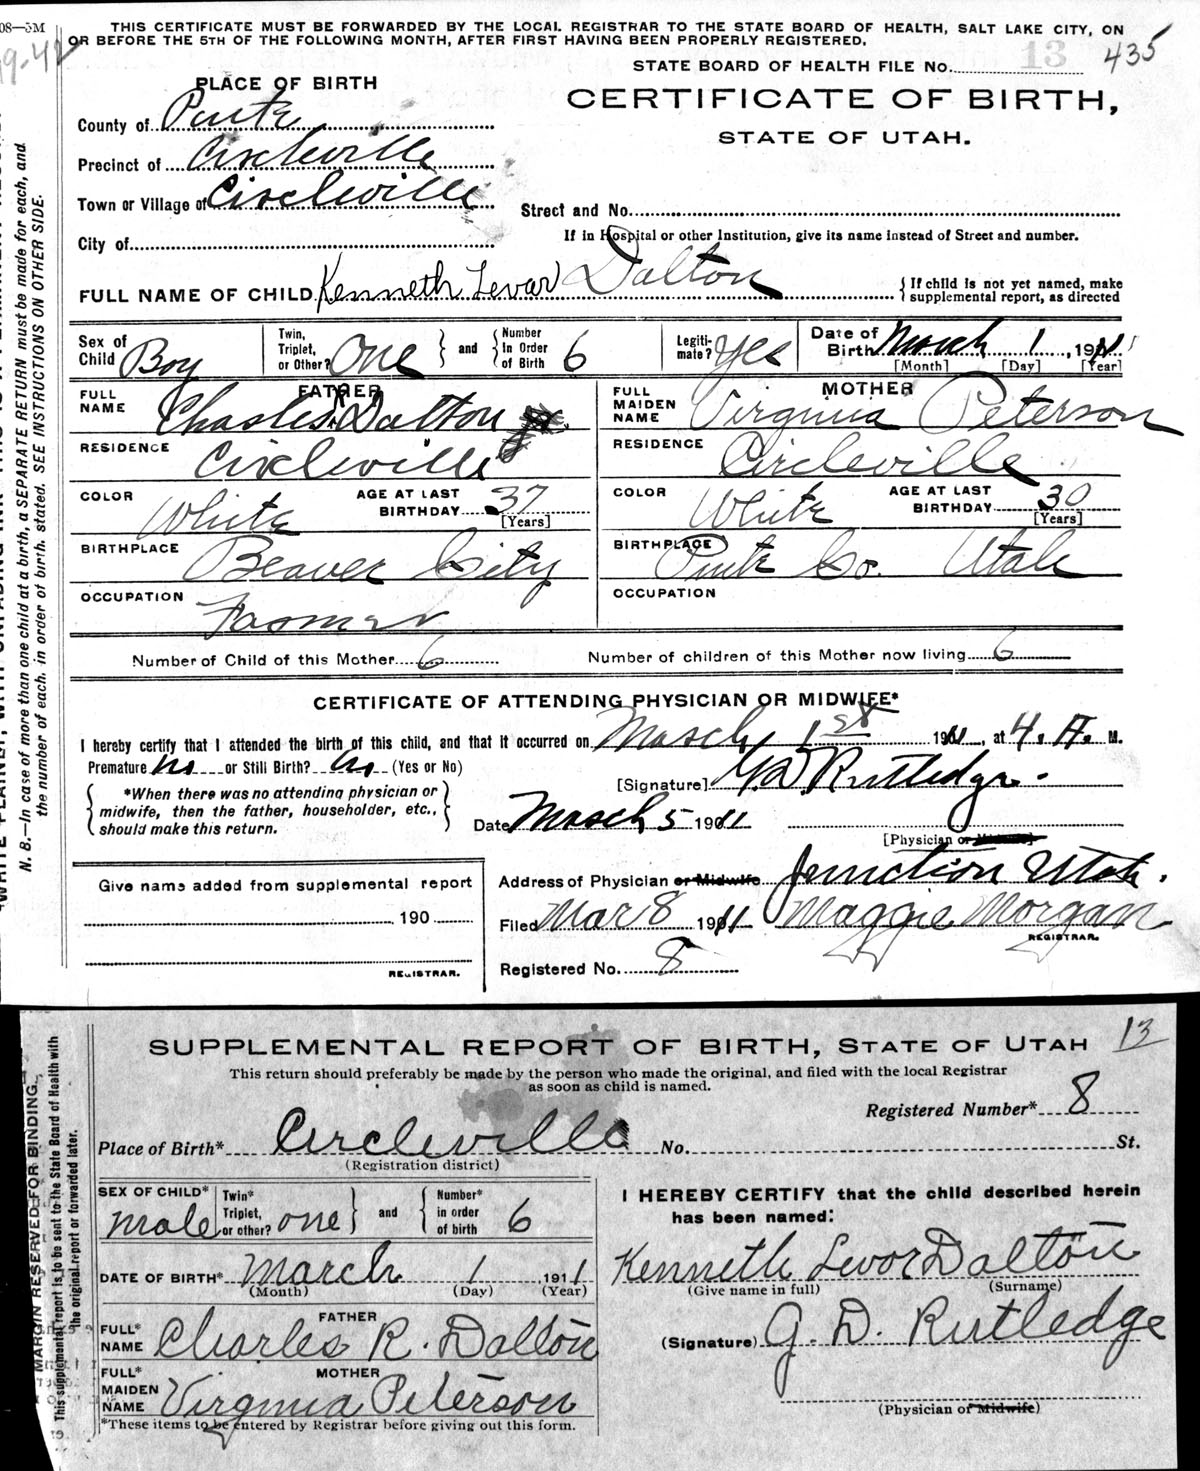 THIS CERTIFICATE MUST BE FORWARDED BY THE LOCAL REGISTRAR TO THE STATE BOARD OF HEALTH, SALT LAKE CITY, ON
OR BEFORE THE 5TH OF THE FOLLOWING MONTH, AFTER FIRST HAVING BEEN PROPERLY REGISTERED.
08—5M
13 435
STATE BOARD OF HEALTH FILE No.
PLACE OF BIRTH
CERTIFICATE OF BIRTH,
STATE OF UTAH.
County of Piute
Precinct of Circleville
Town or Village of Circleville
Street and No.
City of
If in Hospital or other Institution, give its name instead of Street and number.
FULL NAME OF CHILD Kenneth Levar Dalton { If child is not yet named, make supplemental report, as directed
Sex of Child Boy Twin, Triplet, or Other? One } and { Number In Order of Birth 6 Legiti-mate? Yes Date of Birth March 1, 1911
[Month] [Day] [Year]
FATHER MOTHER
FULL NAME Charles R Dalton FULL MAIDEN NAME Virginia Peterson
RESIDENCE Circleville RESIDENCE Circleville
COLOR White AGE AT LAST BIRTHDAY 37 [Years] COLOR White AGE AT LAST BIRTHDAY 30 [Years]
BIRTHPLACE Beaver City BIRTHPLACE Piute Co. Utah
OCCUPATION Farmer OCCUPATION
Number of Child of this Mother 6 Number of children of this Mother now living 6
CERTIFICATE OF ATTENDING PHYSICIAN OR MIDWIFE*
I hereby certify that I attended the birth of this child, and that it occurred on March 1st 1911, at 4. A. M.
Premature? no or Still Birth? no (Yes or No)
[Signature] G. D. Rutledge.
{ *When there was no attending physician or midwife, then the father, householder, etc., should make this return. }
Date March 5 1911
[Physician or Midwife]
Give name added from supplemental report
Address of Physician or Midwife Junction Utah.
190
Filed Mar 8 1911 Maggie Morgan
REGISTRAR.
REGISTRAR.
Registered No. 8
N. B.—In case of more than one child at a birth, a SEPARATE RETURN must be made for each, and
the number of each, in order of birth, stated. SEE INSTRUCTIONS ON OTHER SIDE.
13
SUPPLEMENTAL REPORT OF BIRTH, STATE OF UTAH
This return should preferably be made by the person who made the original, and filed with the local Registrar
as soon as child is named.
Registered Number* 8
Place of Birth* Circleville No. St.
(Registration district)
SEX OF CHILD* male Twin* Triplet, or other? one } and { Number* in order of birth 6
I HEREBY CERTIFY that the child described herein
has been named:
DATE OF BIRTH* March 1 1911
(Month) (Day) (Year)
Kenneth Levor Dalton
(Give name in full) (Surname)
FATHER
FULL* NAME Charles R. Dalton
(Signature) G. D. Rutledge
MOTHER
FULL* MAIDEN NAME Virginia Peterson
(Physician or Midwife)
*These items to be entered by Registrar before giving out this form.
MARGIN RESERVED FOR BINDING.
This supplemental report is to be sent to the State Board of Health with
the original report or forwarded later.